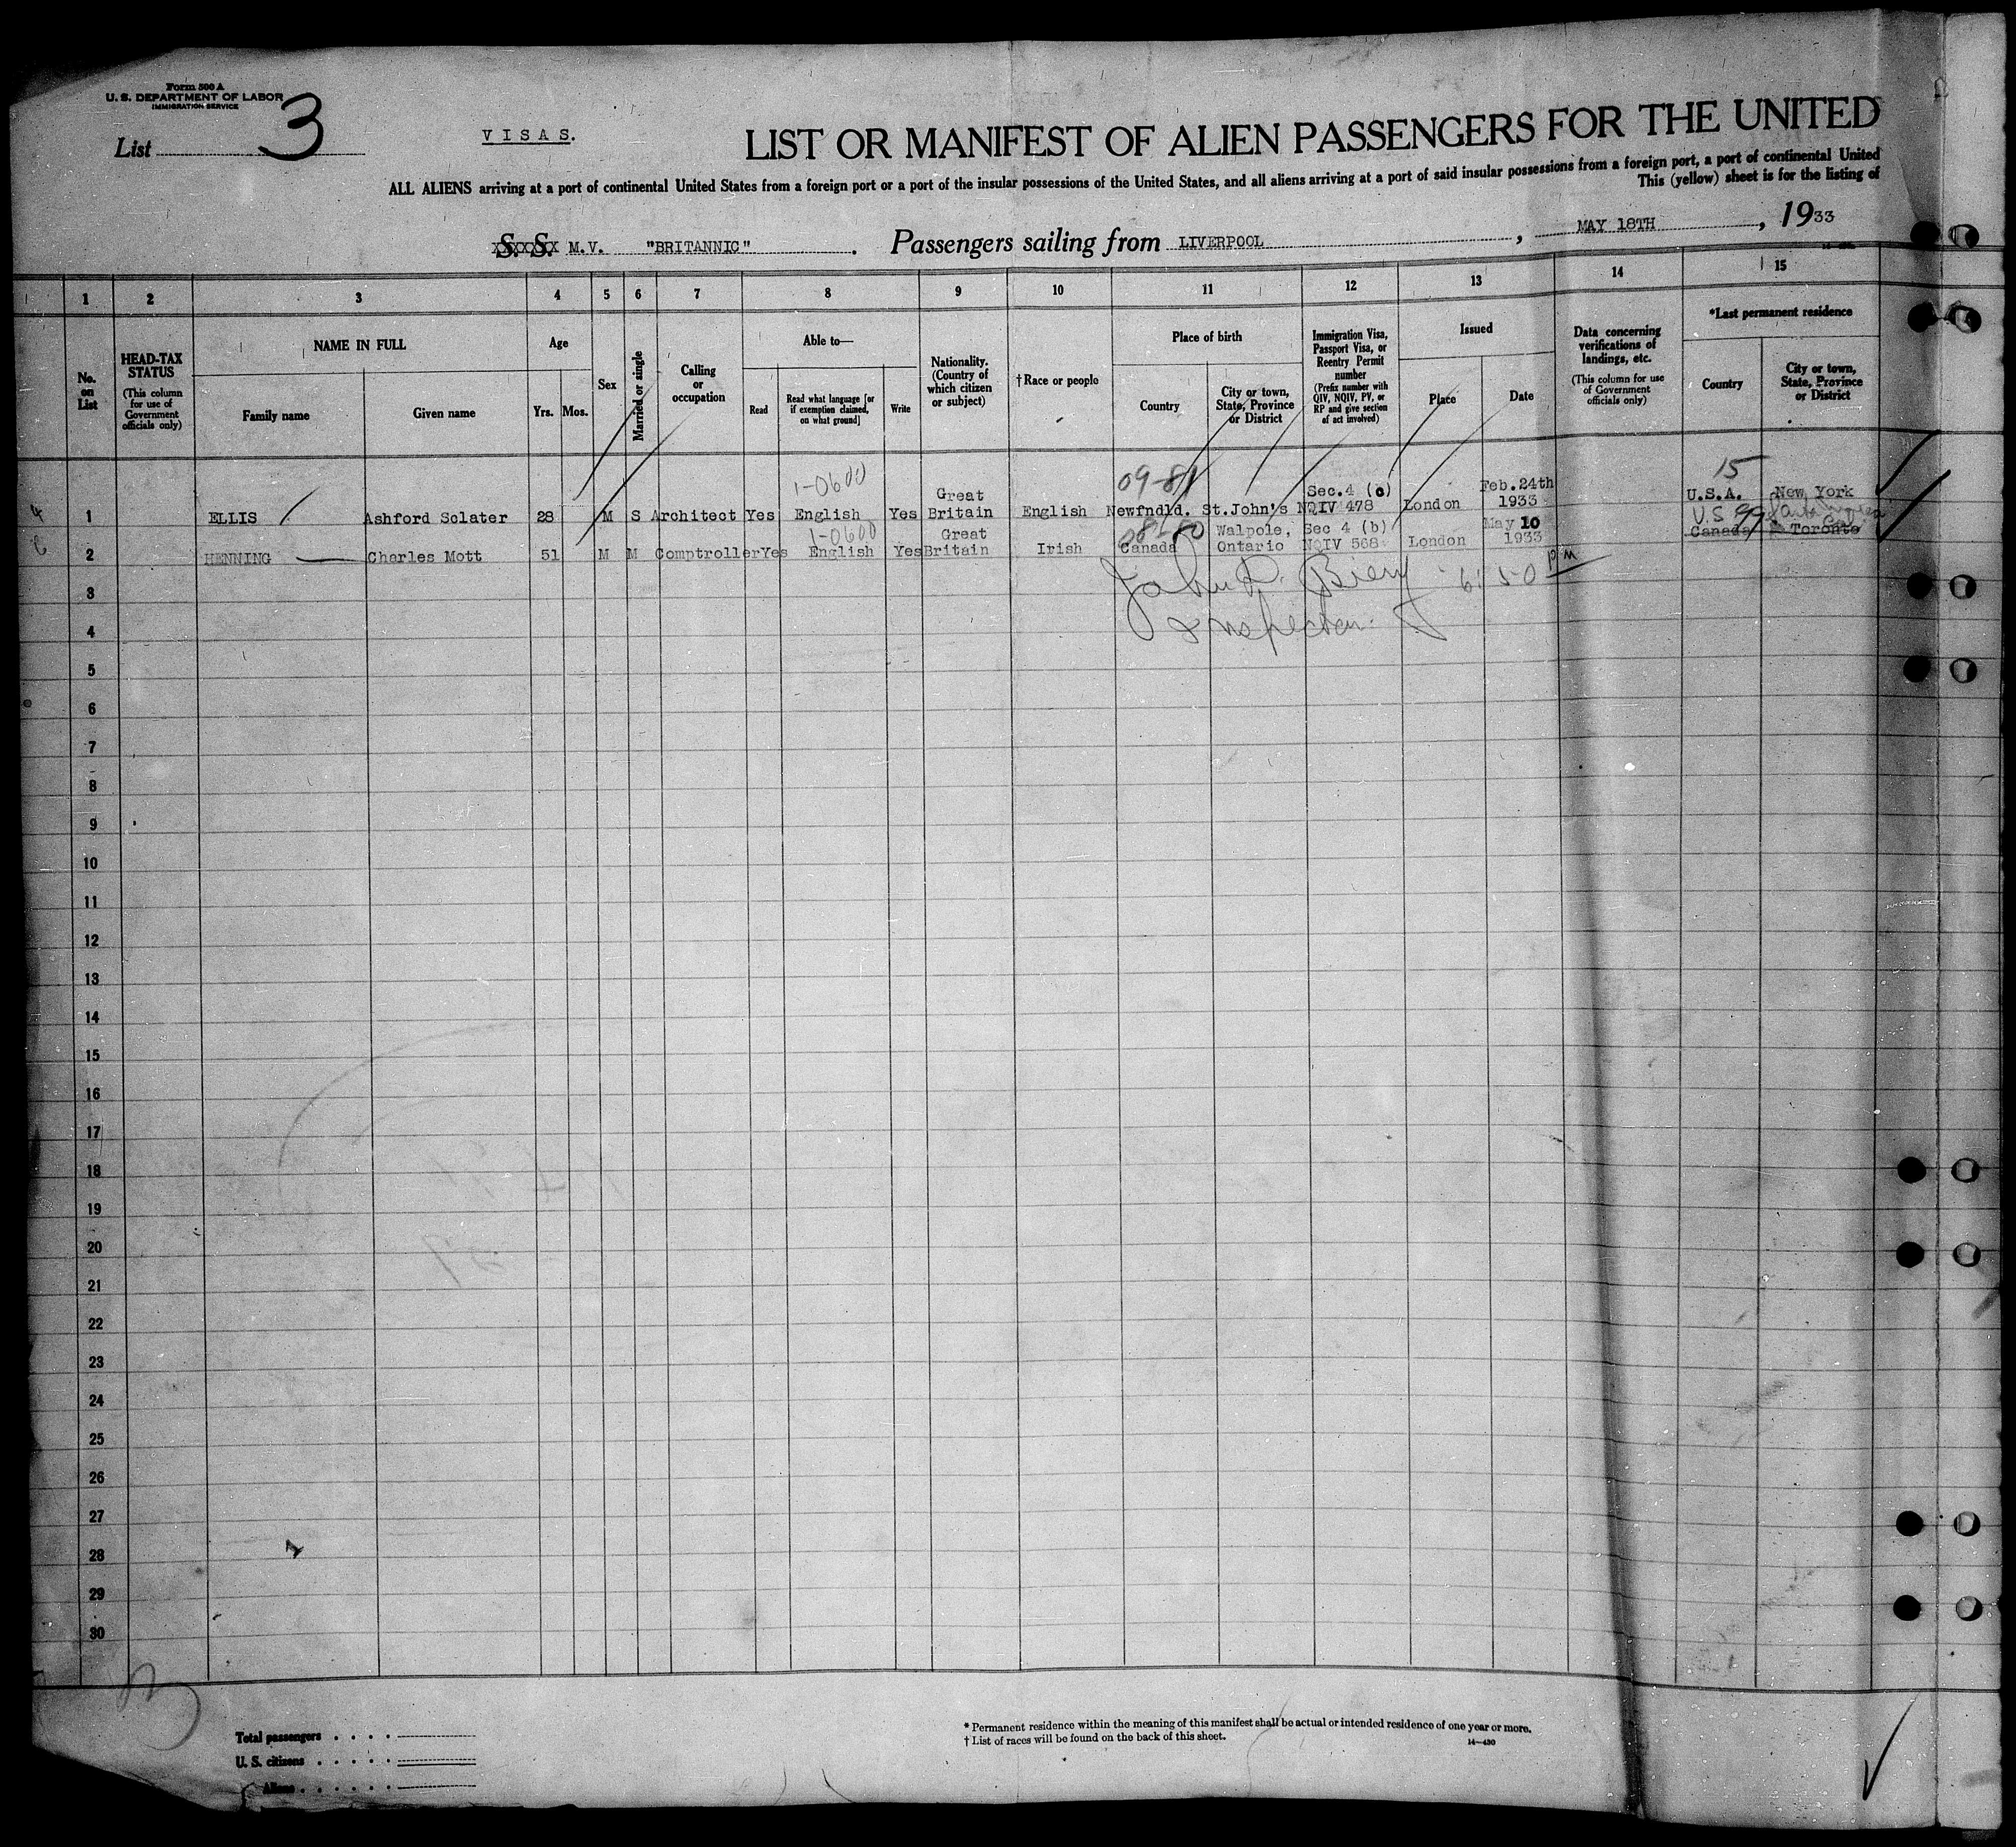 Form 500 A
U. S. DEPARTMENT OF LABOR
IMMIGRATION SERVICE
List 3
VISAS.
LIST OR MANIFEST OF ALIEN PASSENGERS FOR THE UNITED
ALL ALIENS arriving at a port of continental United States from a foreign port or a port of the insular possessions of the United States, and all aliens arriving at a port of said insular possessions from a foreign port, a port of continental United
This (yellow) sheet is for the listing of
S. S. M.V. "BRITANNIC". Passengers sailing from LIVERPOOL, MAY 18TH, 1933
1 2 3 4 5 6 7 8 9 10 11 12 13 14 15
No. on List
HEAD-TAX STATUS (This column for use of Government officials only)
NAME IN FULL
Family name Given name
Age
Yrs. Mos.
Sex
Married or single
Calling or occupation
Able to—
Read
Read what language [or if exemption claimed, on what ground]
Write
Nationality. (Country of which citizen or subject)
† Race or people
Place of birth
Country
City or town, State, Province or District
Immigration Visa, Passport Visa, or Reentry Permit number (Prefix number with QIV, NQIV, PV, or RP and give section of act involved)
Issued
Place Date
Data concerning verifications of landings, etc. (This column for use of Government officials only)
*Last permanent residence
Country
City or town, State, Province or District
1-0600 09-81 15
1 ELLIS Ashford Sclater 28 M S Architect Yes English Yes Great Britain English Newfndld. St.John's Sec.4 (c) NQIV 478 London Feb.24th 1933 U.S.A. New York
1-0600 08-80 U.S 99
2 HENNING Charles Mott 51 M M Comptroller Yes English Yes Great Britain Irish Canada Walpole, Ontario Sec 4 (b) NQIV 568 London May 10 1933 Canada Toronto
John P.
6:50 PM
Inspector
3
4
5
6
7
8
9
10
11
12
13
14
15
16
17
18
19
20
21
22
23
24
25
26
27
28
29
30
Total passengers
U. S. citizens
Aliens
* Permanent residence within the meaning of this manifest shall be actual or intended residence of one year or more.
† List of races will be found on the back of this sheet.
14—430